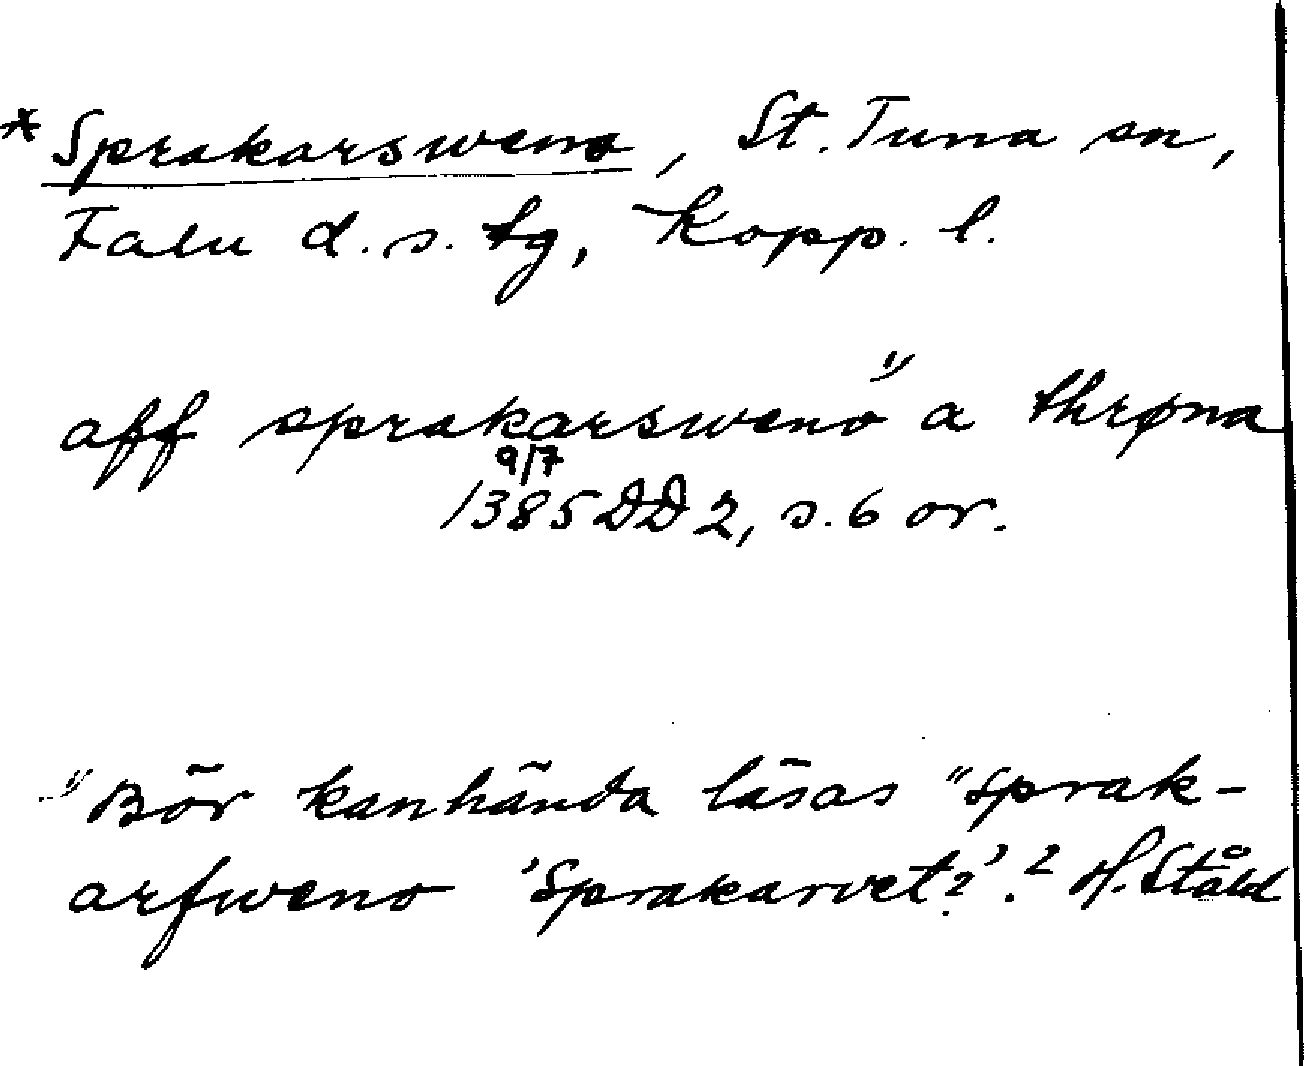 *Sprakarsweno, St. Tuna sn,
Falu d.s. tg, Kopp. l.
aff sprakarsweno" a thrøna
9/7
1385 DD 2, s. 6 or.
"Bör kanhända läsas "sprak-
arfweno 'Sprakarvet?'." H. Ståhl